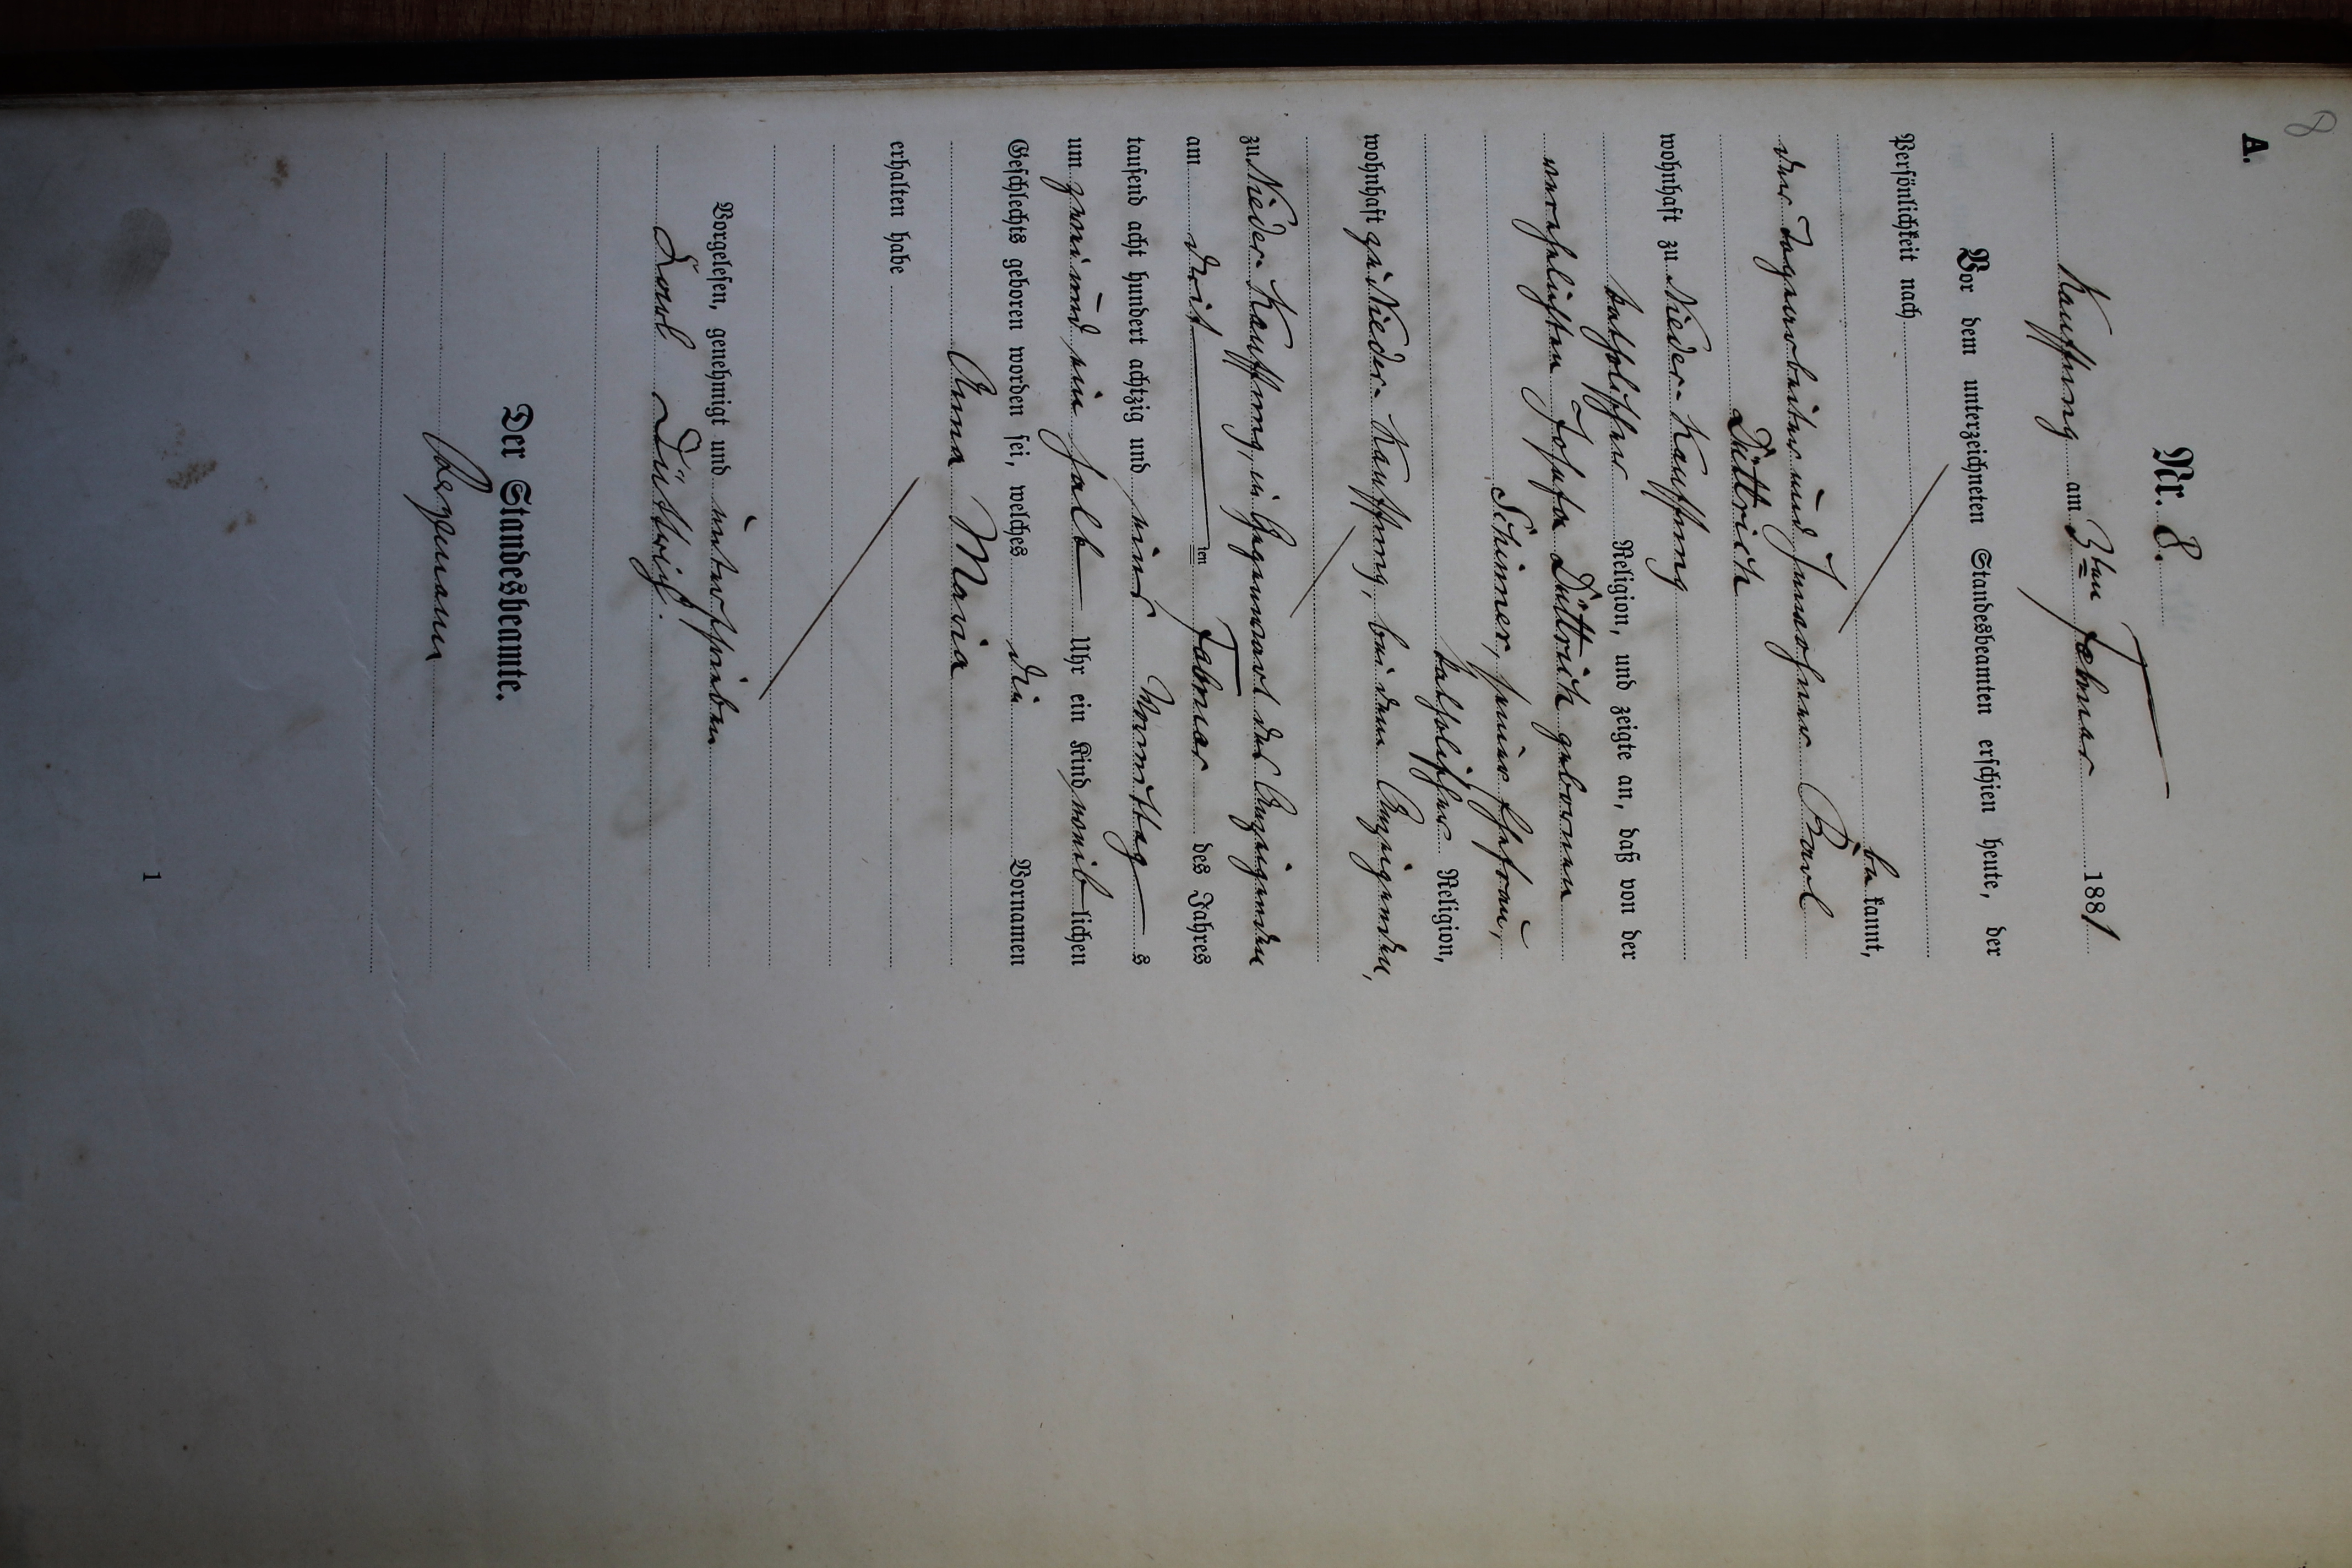 8
A.
Nr. 8.
Kauffung am 3ten Februar 1881
Vor dem unterzeichneten Standesbeamten erschien heute, der
Persönlichkeit nach
be kannt,
der Tagearbeiter und Inwohner Karl
Dittrich
wohnhaft zu Nieder-Kauffung
katholischer Religion, und zeigte an, daß von der
verehelichten Josefa Dittrich geborenen
Schirner, seiner Ehefrau,
katholischer Religion,
wohnhaft zu Nieder-Kauffung, bei dem Anzeigenden,
zu Nieder-Kauffung, in Gegenwart des Anzeigenden
am drit ten Februar des Jahres
tausend acht hundert achtzig und eins Vormittag s
um zwei und ein halb Uhr ein Kind weib lichen
Geschlechts geboren worden sei, welches die Vornamen
Anna Maria
erhalten habe
Vorgelesen, genehmigt und unterschrieben
Karl Dittrich.
Der Standesbeamte.
1